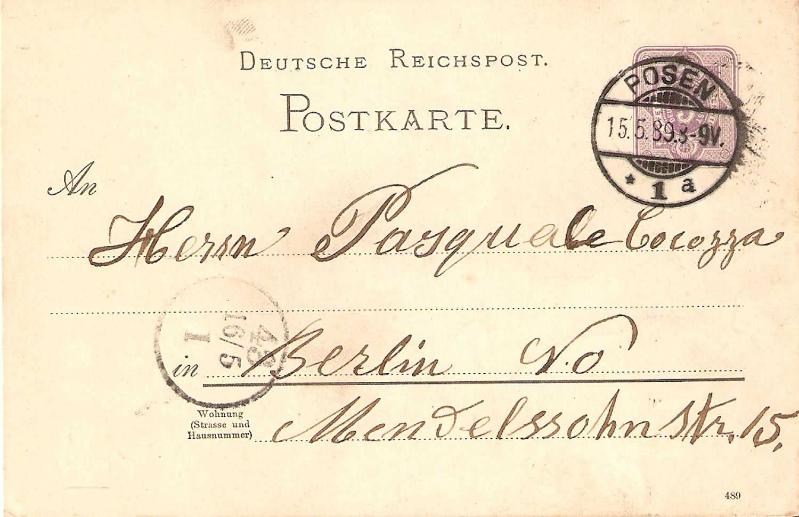 DEUTSCHE REICHSPOST.
POSTKARTE.
POSEN
15.5.89.8-9V.
* 1 a
An
Herrn Pasquale Cocozza
48
16/5
I
in Berlin No
Wohnung
(Strasse und
Hausnummer)
Mendelssohnstr. 15.
489